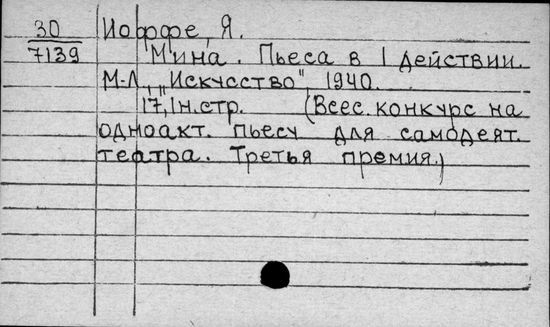 30 Иоффе, Я.
7139 Мина. Пьеса в 1 действии.
М-Л, „Искусство", 1940.
17,1н.стр. (Всес. конкурс на
одноакт. пьесу для самодеят.
театра. Третья премия.)